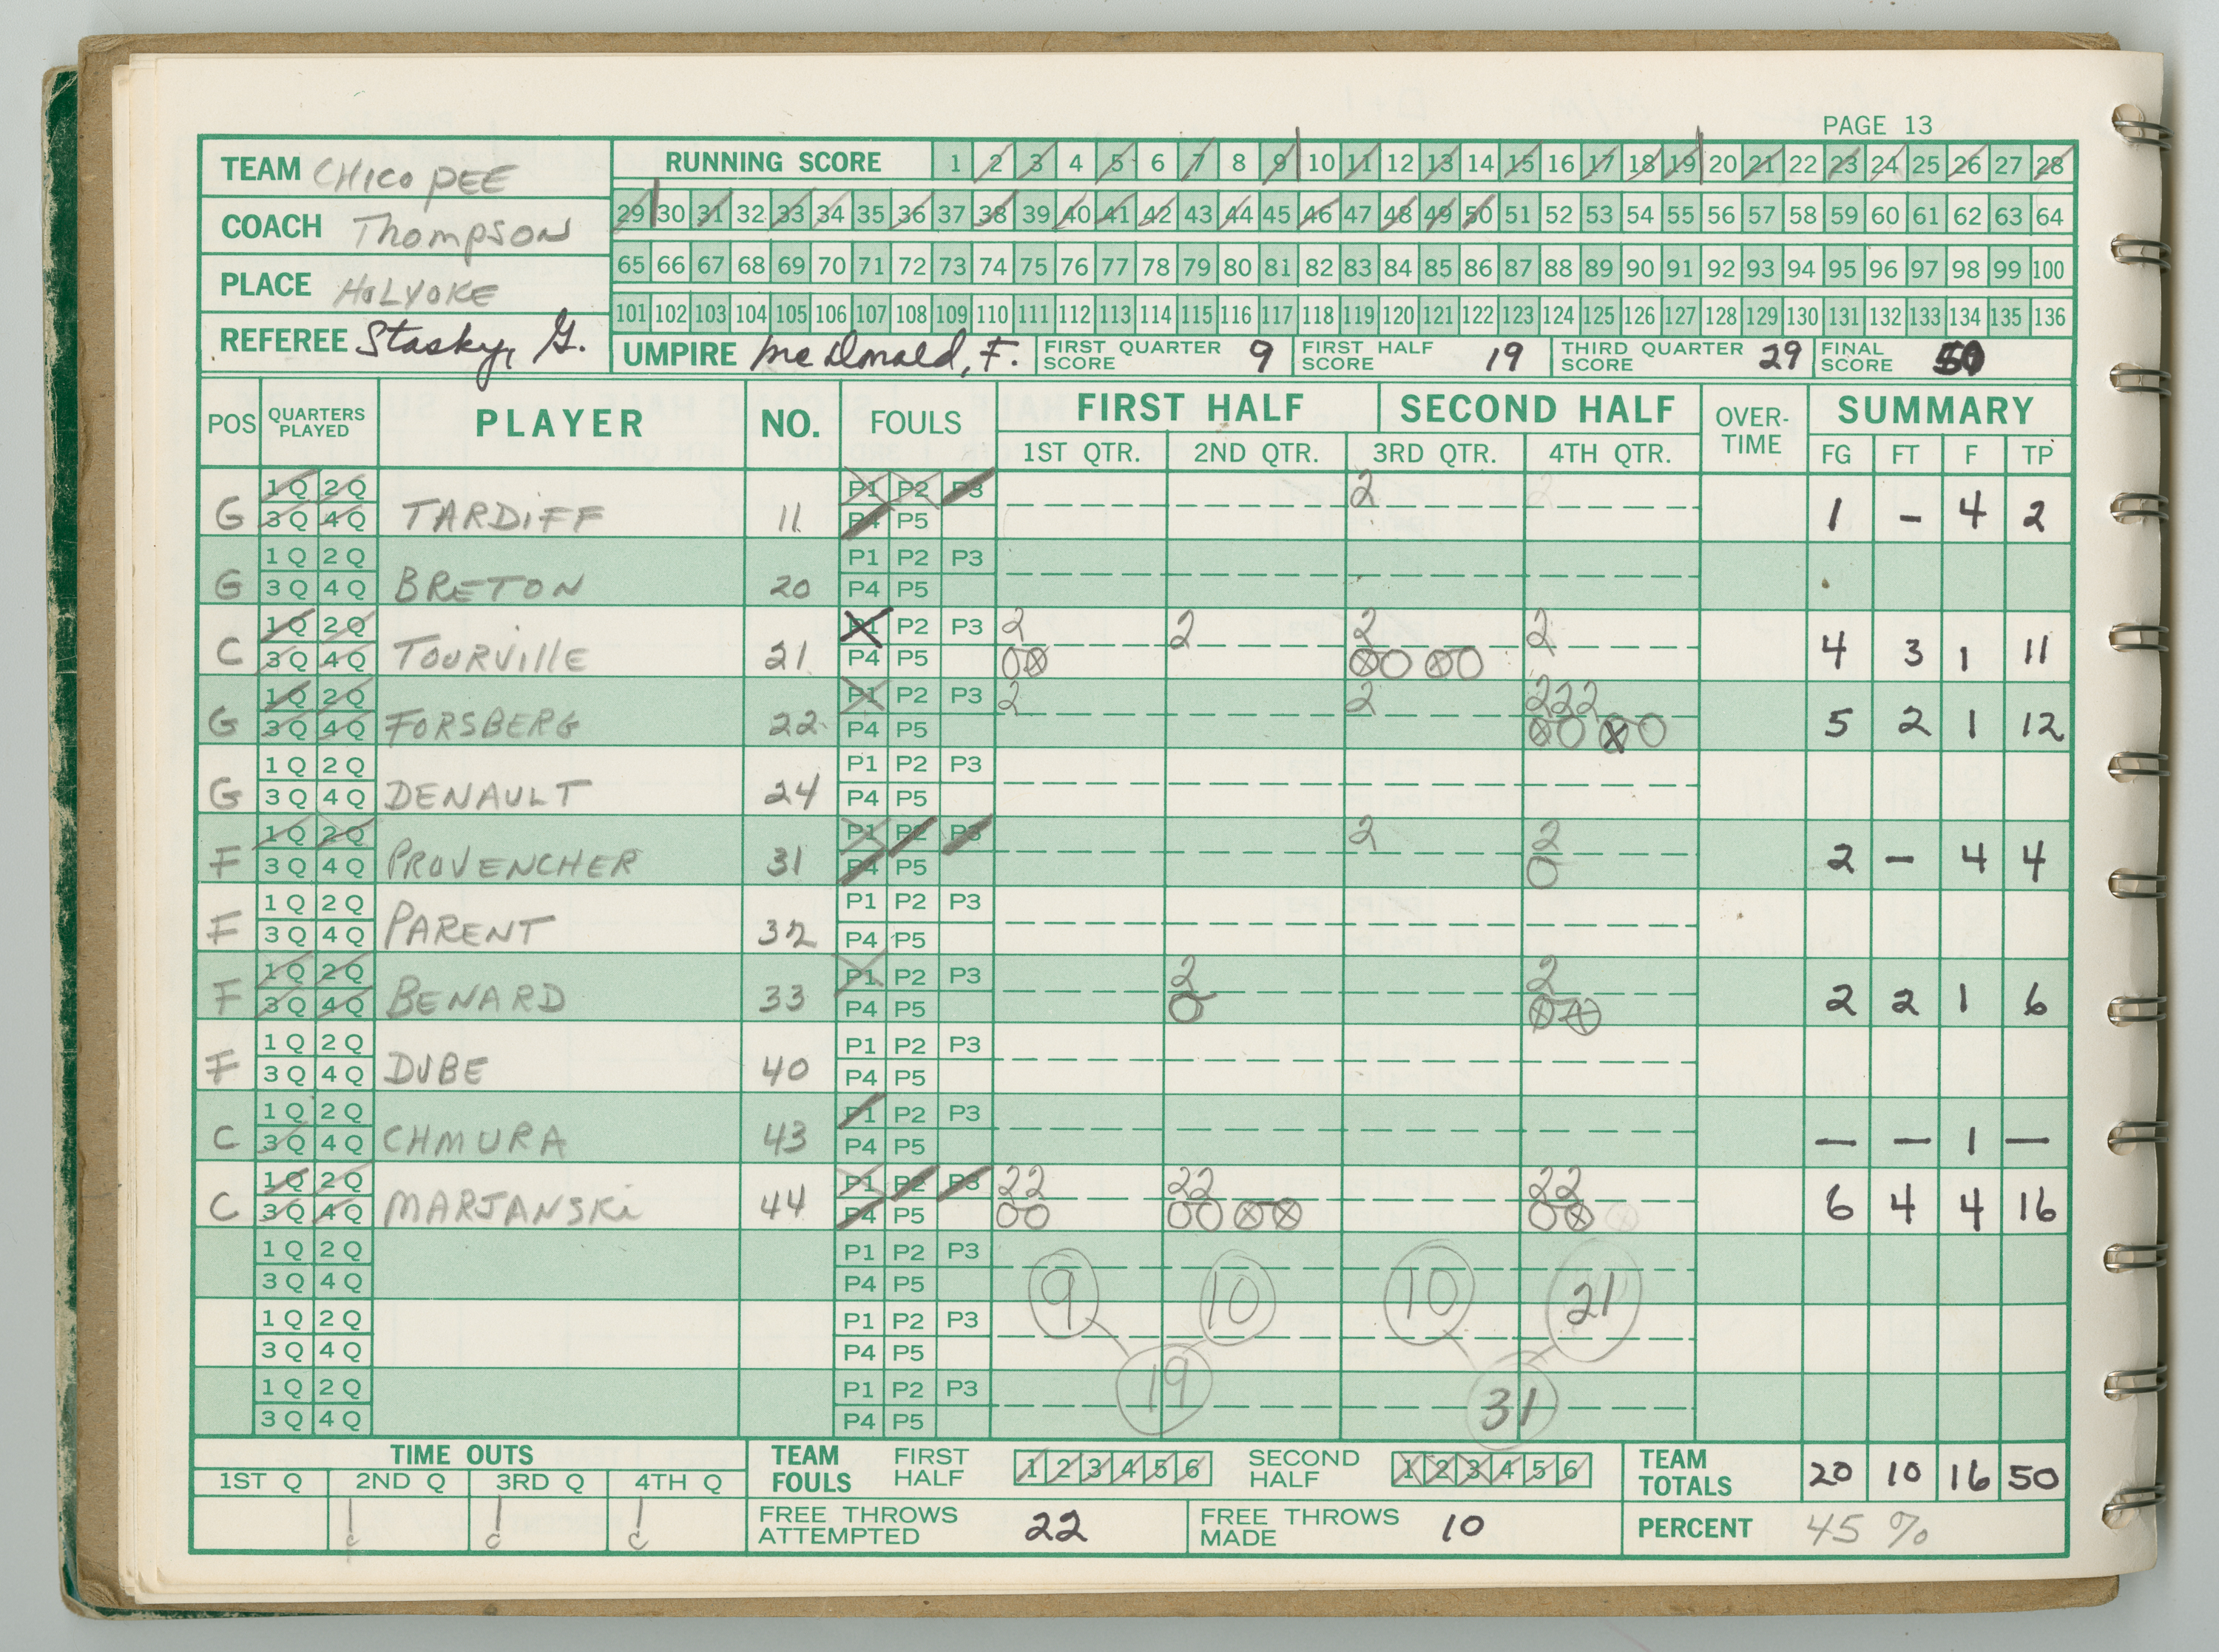 PAGE 13
TEAM CHICOPEE
COACH Thompson
PLACE HOLYOKE
REFEREE Stasky, G.
RUNNING SCORE 1 2 3 4 5 6 7 8 9 10 11 12 13 14 15 16 17 18 19 20 21 22 23 24 25 26 27 28
29 30 31 32 33 34 35 36 37 38 39 40 41 42 43 44 45 46 47 48 49 50 51 52 53 54 55 56 57 58 59 60 61 62 63 64
65 66 67 68 69 70 71 72 73 74 75 76 77 78 79 80 81 82 83 84 85 86 87 88 89 90 91 92 93 94 95 96 97 98 99 100
101 102 103 104 105 106 107 108 109 110 111 112 113 114 115 116 117 118 119 120 121 122 123 124 125 126 127 128 129 130 131 132 133 134 135 136
UMPIRE McDonald, F. FIRST QUARTER SCORE 9 FIRST HALF SCORE 19 THIRD QUARTER SCORE 29 FINAL SCORE 50
POS QUARTERS PLAYED PLAYER NO. FOULS FIRST HALF SECOND HALF OVER-TIME SUMMARY
1ST QTR. 2ND QTR. 3RD QTR. 4TH QTR. FG FT F TP
G 1Q 2Q 3Q 4Q TARDIFF 11 P1 P2 P3 P4 P5 2 1 - 4 2
G 1Q 2Q 3Q 4Q BRETON 20 P1 P2 P3 P4 P5
C 1Q 2Q 3Q 4Q TOURVILLE 21 P1 P2 P3 P4 P5 2 2 2 2 4 3 1 11
G 1Q 2Q 3Q 4Q FORSBERG 22 P1 P2 P3 P4 P5 2 2 222 5 2 1 12
G 1Q 2Q 3Q 4Q DENAULT 24 P1 P2 P3 P4 P5
F 1Q 2Q 3Q 4Q PROVENCHER 31 P1 P2 P3 P4 P5 2 2 2 - 4 4
F 1Q 2Q 3Q 4Q PARENT 32 P1 P2 P3 P4 P5
F 1Q 2Q 3Q 4Q BENARD 33 P1 P2 P3 P4 P5 2 2 2 2 1 6
F 1Q 2Q 3Q 4Q DUBE 40 P1 P2 P3 P4 P5
C 1Q 2Q 3Q 4Q CHMURA 43 P1 P2 P3 P4 P5 — — 1 —
C 1Q 2Q 3Q 4Q MARJANSKi 44 P1 P2 P3 P4 P5 22 22 22 6 4 4 16
1Q 2Q 3Q 4Q P1 P2 P3 P4 P5 9 10 10 21
1Q 2Q 3Q 4Q P1 P2 P3 P4 P5
1Q 2Q 3Q 4Q P1 P2 P3 P4 P5 19 31
TIME OUTS
1ST Q 2ND Q 3RD Q 4TH Q
TEAM FOULS FIRST HALF 1 2 3 4 5 6 SECOND HALF 1 2 3 4 5 6 TEAM TOTALS 20 10 16 50
FREE THROWS ATTEMPTED 22 FREE THROWS MADE 10 PERCENT 45 %